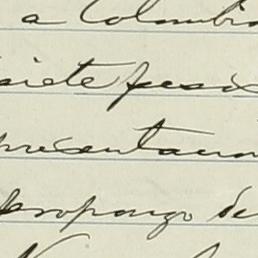 a Colombia
siete pesos
presentacion
propongo de